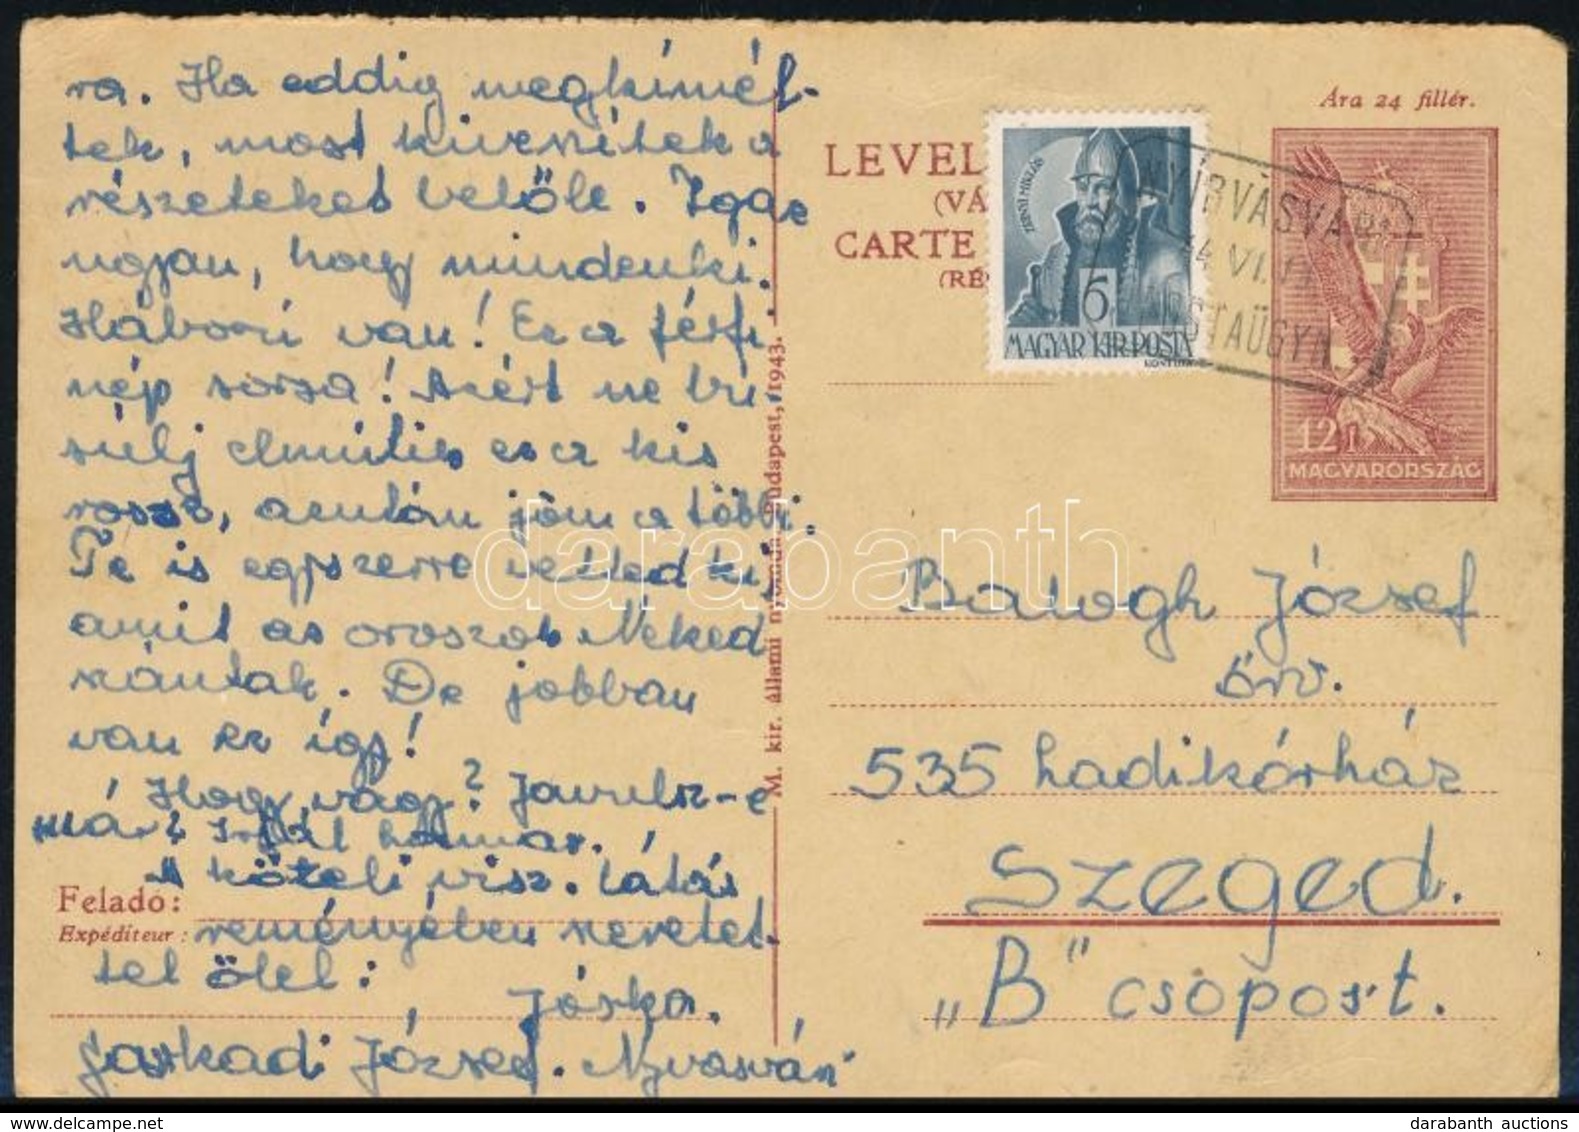 ra. Ha eddig megkímél-
tek, most kivesszitek a
részeteket belőle. Igaz
ugyan, hogy mindenki.
Háború van! Ez a férfi
nép sorsa! Azért ne bú-
sulj elmúlik ez a kis
rossz, azután jön a többi.
Te is egyszerre vetted ki,
amit az oroszok Neked
szántak. De jobban
van ez így!
Hogy vagy? Javulsz-e
már? Írjál hamar.
A közeli visz. látás
reményében szeretet-
tel ölel:
Jóska.
Gaskadi József. Nyvasvári
Feladó:
Expéditeur:
M. kir. állami nyomda, Budapest, 1943.
Ára 24 fillér.
LEVEL
(VÁ
CARTE
(RÉ
ZRINYI MIKLÓS
6
MAGYAR KIR. POSTA
NYÍRVASVÁRI
44 VI.
POSTAÜGYN.
12 f
MAGYARORSZÁG
Balogh József
örv.
535 hadikórház
Szeged.
„B" csoport.
darabanth
darabanth auctions